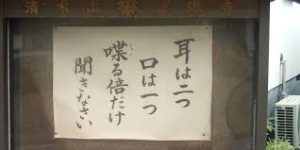 耳は二つ
口は一つ
喋る倍だけ
聞きなさい